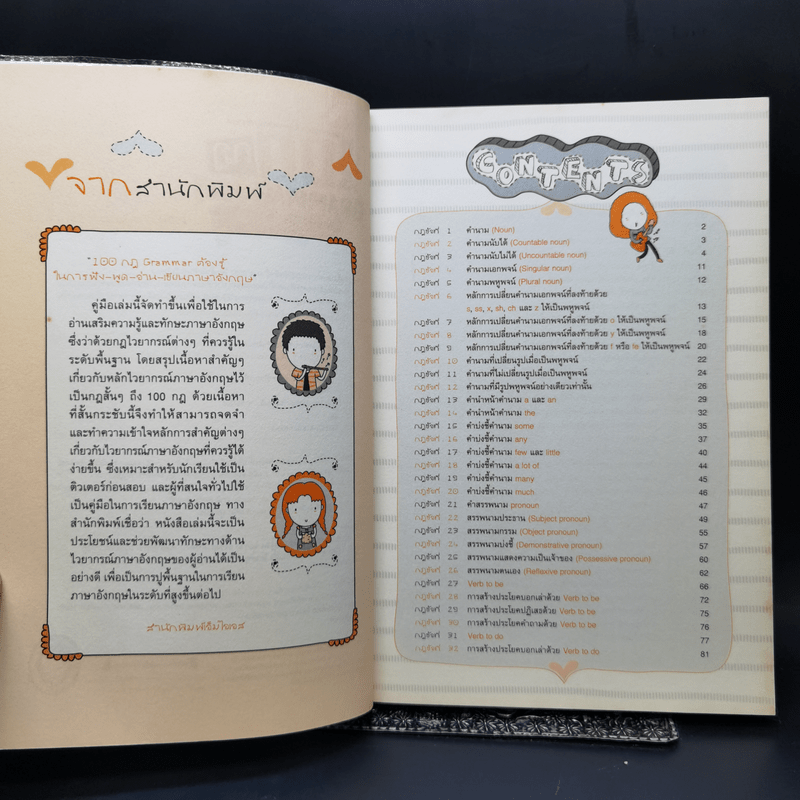 จากสำนักพิมพ์
"100 กฎ Grammar ต้องรู้
ในการฟัง-พูด-อ่าน-เขียนภาษาอังกฤษ"
คู่มือเล่มนี้จัดทำขึ้นเพื่อใช้ในการ
อ่านเสริมความรู้และทักษะภาษาอังกฤษ
ซึ่งว่าด้วยกฎไวยากรณ์ต่างๆ ที่ควรรู้ใน
ระดับพื้นฐาน โดยสรุปเนื้อหาสำคัญๆ
เกี่ยวกับหลักไวยากรณ์ภาษาอังกฤษไว้
เป็นกฎสั้นๆ ถึง 100 กฎ ด้วยเนื้อหา
ที่สั้นกระชับนี้จึงทำให้สามารถจดจำ
และทำความเข้าใจหลักการสำคัญต่างๆ
เกี่ยวกับไวยากรณ์ภาษาอังกฤษที่ควรรู้ได้
ง่ายขึ้น ซึ่งเหมาะสำหรับนักเรียนใช้เป็น
ติวเตอร์ก่อนสอบ และผู้ที่สนใจทั่วไปใช้
เป็นคู่มือในการเรียนภาษาอังกฤษ ทาง
สำนักพิมพ์เชื่อว่า หนังสือเล่มนี้จะเป็น
ประโยชน์และช่วยพัฒนาทักษะทางด้าน
ไวยากรณ์ภาษาอังกฤษของผู้อ่านได้เป็น
อย่างดี เพื่อเป็นการปูพื้นฐานในการเรียน
ภาษาอังกฤษในระดับที่สูงขึ้นต่อไป
CONTENTS
กฎข้อที่ 1 คำนาม (Noun) 2
กฎข้อที่ 2 คำนามนับได้ (Countable noun) 3
กฎข้อที่ 3 คำนามนับไม่ได้ (Uncountable noun) 4
กฎข้อที่ 4 คำนามเอกพจน์ (Singular noun) 11
กฎข้อที่ 5 คำนามพหูพจน์ (Plural noun) 12
กฎข้อที่ 6 หลักการเปลี่ยนคำนามเอกพจน์ที่ลงท้ายด้วย
s, ss, x, sh, ch และ z ให้เป็นพหูพจน์ 13
กฎข้อที่ 7 หลักการเปลี่ยนคำนามเอกพจน์ที่ลงท้ายด้วย o ให้เป็นพหูพจน์ 15
กฎข้อที่ 8 หลักการเปลี่ยนคำนามเอกพจน์ที่ลงท้ายด้วย y ให้เป็นพหูพจน์ 18
กฎข้อที่ 9 หลักการเปลี่ยนคำนามเอกพจน์ที่ลงท้ายด้วย f หรือ fe ให้เป็นพหูพจน์ 20
กฎข้อที่ 10 คำนามที่เปลี่ยนรูปเมื่อเป็นพหูพจน์ 22
กฎข้อที่ 11 คำนามที่ไม่เปลี่ยนรูปเมื่อเป็นพหูพจน์ 24
กฎข้อที่ 12 คำนามที่มีรูปพหูพจน์อย่างเดียวเท่านั้น 26
กฎข้อที่ 13 คำนำหน้าคำนาม a และ an 29
กฎข้อที่ 14 คำนำหน้าคำนาม the 32
กฎข้อที่ 15 คำบ่งชี้คำนาม some 35
กฎข้อที่ 16 คำบ่งชี้คำนาม any 37
กฎข้อที่ 17 คำบ่งชี้คำนาม few และ little 40
กฎข้อที่ 18 คำบ่งชี้คำนาม a lot of 44
กฎข้อที่ 19 คำบ่งชี้คำนาม many 45
กฎข้อที่ 20 คำบ่งชี้คำนาม much 46
กฎข้อที่ 21 คำสรรพนาม pronoun 47
กฎข้อที่ 22 สรรพนามประธาน (Subject pronoun) 49
กฎข้อที่ 23 สรรพนามกรรม (Object pronoun) 55
กฎข้อที่ 24 สรรพนามบ่งชี้ (Demonstrative pronoun) 57
กฎข้อที่ 25 สรรพนามแสดงความเป็นเจ้าของ (Possessive pronoun) 60
กฎข้อที่ 26 สรรพนามตนเอง (Reflexive pronoun) 62
กฎข้อที่ 27 Verb to be 66
กฎข้อที่ 28 การสร้างประโยคบอกเล่าด้วย Verb to be 72
กฎข้อที่ 29 การสร้างประโยคปฏิเสธด้วย Verb to be 75
กฎข้อที่ 30 การสร้างประโยคคำถามด้วย Verb to be 76
กฎข้อที่ 31 Verb to do 77
กฎข้อที่ 32 การสร้างประโยคบอกเล่าด้วย Verb to do 81